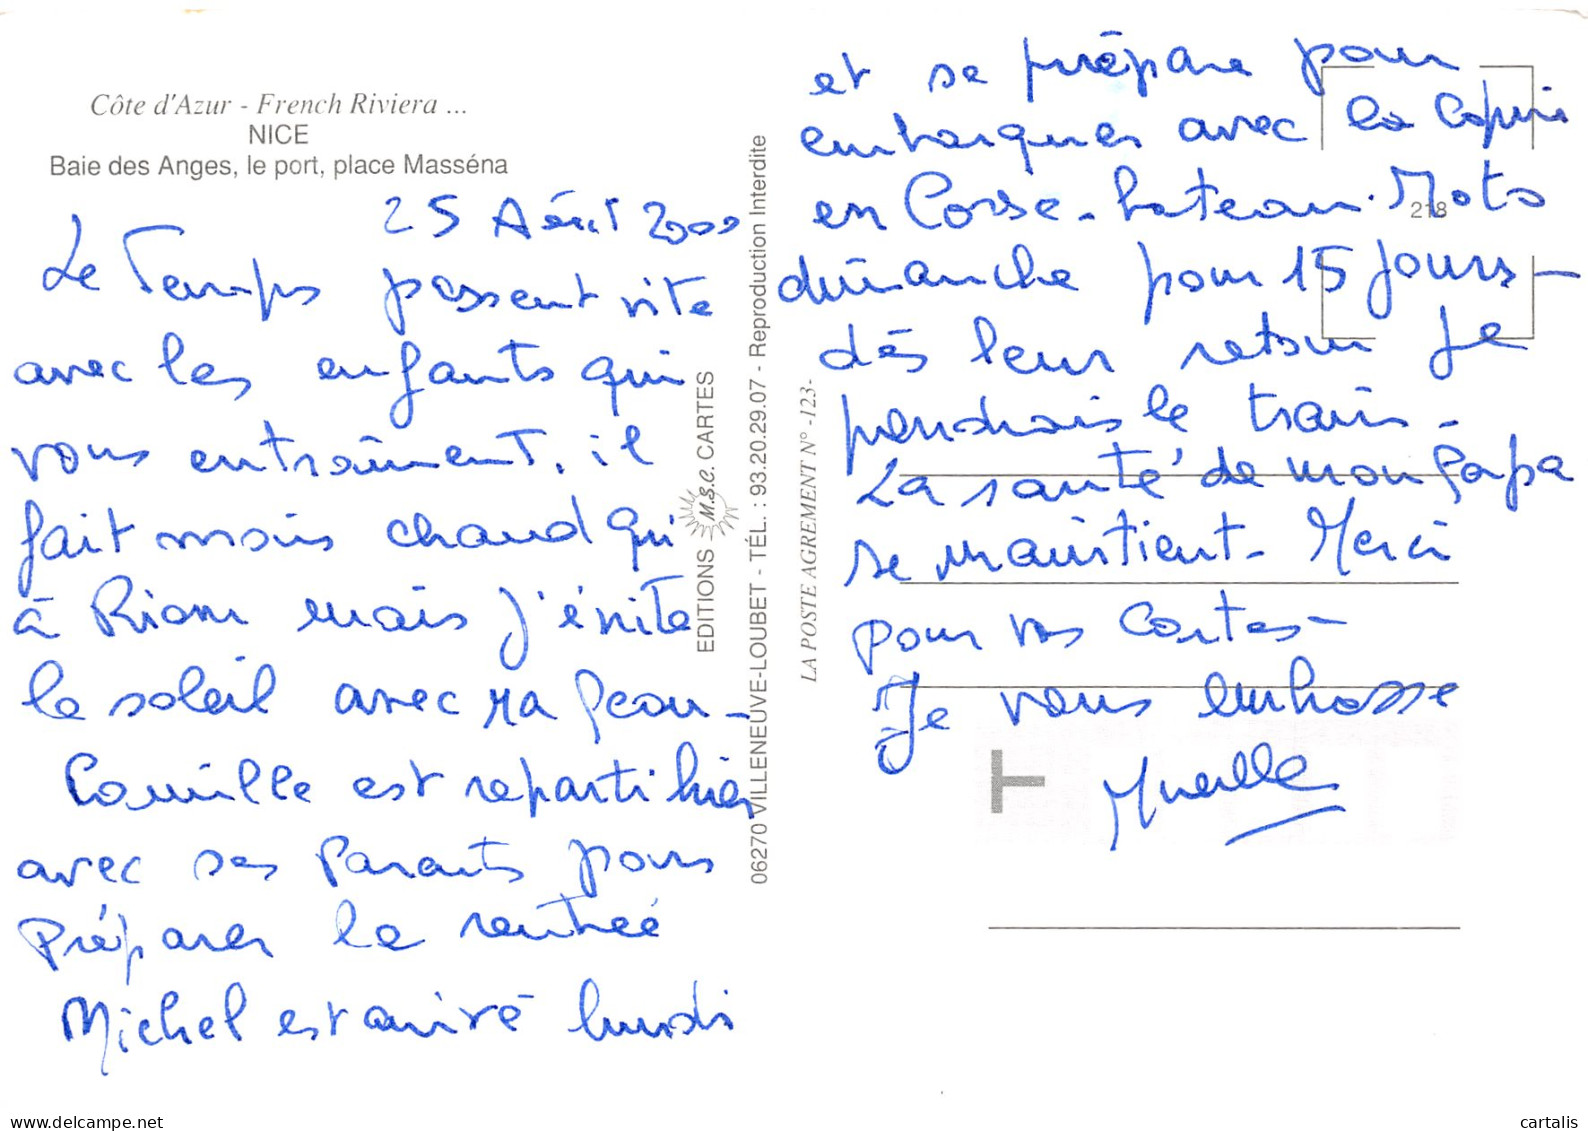 Côte d'Azur - French Riviera ...
NICE
Baie des Anges, le port, place Masséna
25 Août 2000
Le Temps passent vite
avec les enfants qui
vous entraînent. il
fait moins chaud qu'
à Riom mais j'évite
le soleil avec ma peau -
Camille est reparti hier
avec ses Parents pour
Préparer la rentrée
Michel est arrivé lundi
EDITIONS M.S.C. CARTES
06270 VILLENEUVE-LOUBET - TÉL. : 93.20.29.07 - Reproduction Interdite
LA POSTE AGREMENT N° -123-
218
et se prépare pour
embarquer avec la
en Corse - bateau. Moto
dimanche pour 15 jours -
dès leur retour Je
prendrais le train -
La santé de mon papa
se maintient - Merci
pour vos cartes -
Je vous embrasse
T
cartalis
https://www.delcampe.net